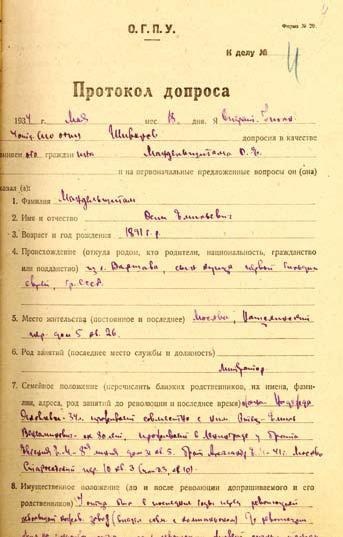 О. Г. П. У.
Форма № 20.
К делу №
4
Протокол допроса
1934 г. мая мес 18 дня. Я
Шиваров допросил в качестве
обв. граждан ина Мандельштама О. Э.
и на первоначальные предложенные вопросы он (она)
казал (а):
1. Фамилия Мандельштам
2. Имя и отчество Осип Эмильевич
3. Возраст и год рождения 1891 г. р.
4. Происхождение (откуда родом, кто родители, национальность, гражданство
или подданство) из г. Варшава, сын купца первой гильдии
еврей, гр. СССР.
5. Место жительства (постоянное и последнее) Москва, Нащекинский
пер. дом 5 кв. 26.
6. Род занятий (последнее место службы и должность)
литератор
7. Семейное положение (перечислить близких родственников, их имена, фами-
лии, адреса, род занятий до революции и последнее время) жена Надежда
Яковлевна 34 л. проживает совместно с ним. Отец Эмиль
80 лет, проживает в Ленинграде у брата
Евгения Э. М. 8 линия дом 31 кв. 5. Брат Александр Э. 41 г. Москва
Старосадский пер. 10 кв. 3
8. Имущественное положение (до и после революции допрашиваемого и его
родственников) У отца был в последние годы перед революцией
завод До революции